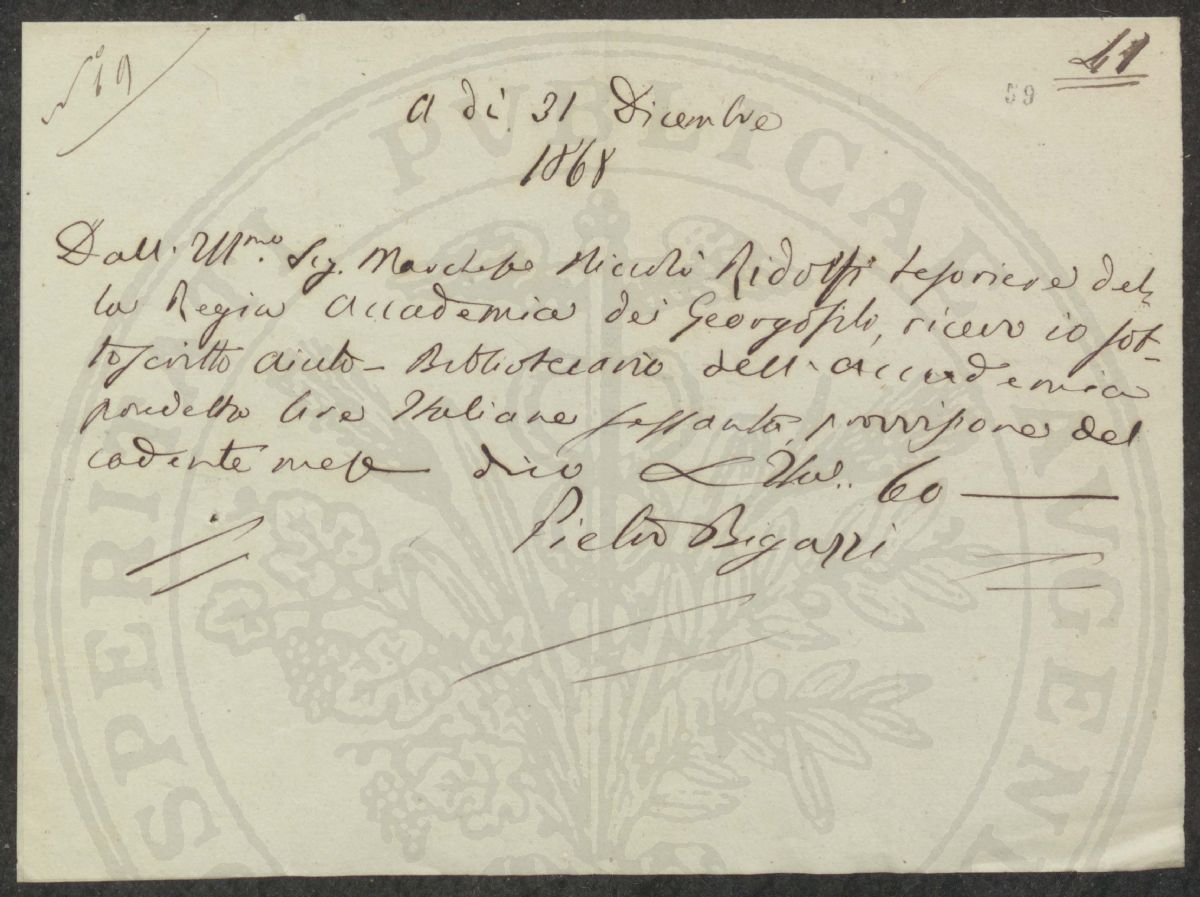 N.° 19
41
59
A dì 31 Dicembre
1868
Dall. Ill.mo Sig. Marchese Niccolò Ridolfi Tesoriere del-
la Regia Accademia dei Georgofili, ricevo io sot-
toscritto Aiuto-Bibliotecario dell'Accademia
predetta lire Italiane sessanta, provvisione del
cadente mese dico L Ita.. 60
Pietro Bigazzi